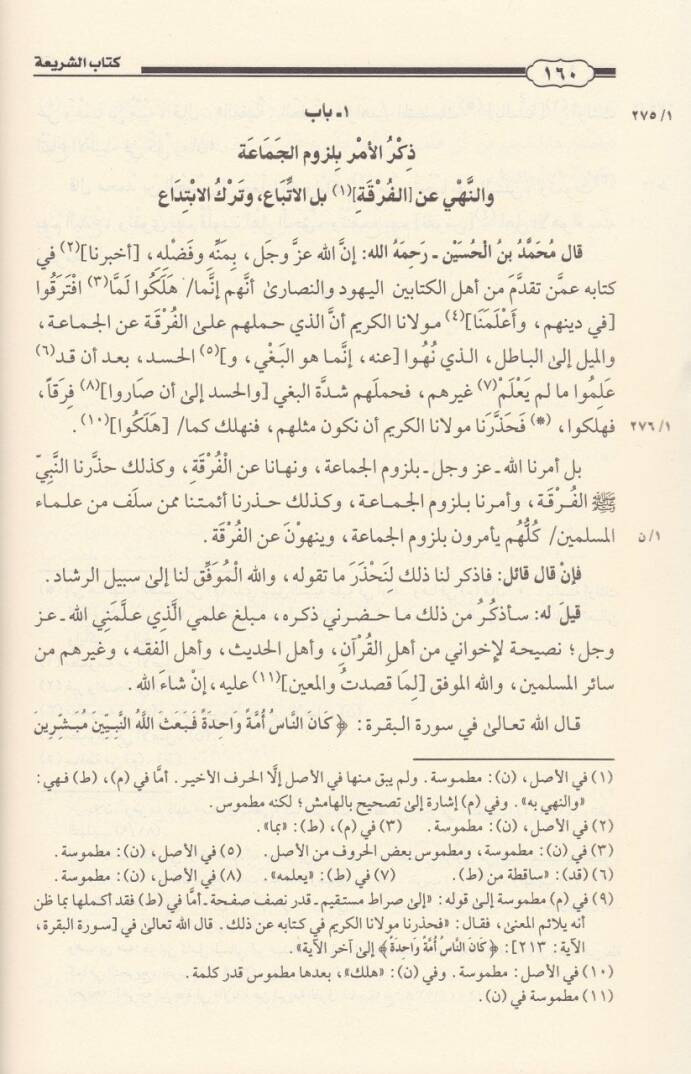 ١٦٠ كتاب الشريعة
٢٧٥/١ ١ـ باب
ذِكْرُ الأمْرِ بلزوم الجَمَاعَة
والنَّهْي عن [الفُرْقَةِ](١) بل الاتِّباع، وتَرْكُ الابْتِدَاع
قال مُحَمَّدُ بنُ الْحُسَيْنِ ـ رَحِمَهُ الله: إنَّ الله عزَّ وجَل، بِمَنِّه وفَضْلِه، [أخبرنا](٢) في
كتابه عمَّن تقدَّمَ من أهل الكتابين اليهود والنصارىٰ أنَّهم إنَّما/ هَلَكُوا لَمَّا(٣) افْتَرَقُوا
[في دينهم، وأَعْلَمَنَا](٤) مولانا الكريم أنَّ الذي حملهم علىٰ الفُرْقَة عن الجماعة،
والميل إلىٰ الباطل، الذي نُهُوا [عنه، إنَّما هو البَغْي، و](٥) الحسد، بعد أن قد(٦)
عَلِمُوا ما لم يَعْلَمْ(٧) غيرهم، فحملَهم شدَّة البغي [والحسد إلىٰ أن صَاروا](٨) فِرَقاً،
٢٧٦/١ فهلكوا، (*) فَحَذَّرَنا مولانا الكريم أن نكون مثلهم، فنهلك كما/ [هَلَكُوا](١٠).
بل أمرنا الله ـ عز وجل ـ بلزوم الجماعة، ونهانا عن الْفُرْقَةِ، وكذلك حذَّرنا النَّبيّ
ﷺ الفُرقَة، وأمرنا بلزوم الجماعة، وكذلك حذرنا أئمتنا ممن سلَف من علماء
١/ن المسلمين/ كُلُّهُم يأمرون بلزوم الجماعة، وينهوْنَ عن الفُرْقَة.
فإنْ قال قائل: فاذكر لنا ذلك لنَحْذَرَ ما تقوله، والله الْمُوَفِّق لنا إلىٰ سبيل الرشاد.
قيلَ له: سأذكُرُ من ذلك ما حضرني ذكره، مبلغ علمي الَّذي علَّمَنِي الله ـ عز
وجل؛ نصيحة لإخواني من أهلِ القُرْآنِ، وأهل الحديث، وأهل الفقه، وغيرهم من
سائر المسلمين، والله الموفق [لِمَا قصدتُ والمعين](١١) عليه، إنْ شاءَ الله.
قال الله تعالىٰ في سورة البقرة: ﴿ كَانَ النَّاسُ أُمَّةً وَاحِدَةً فَبَعَثَ اللَّهُ النَّبِيِّينَ مُبَشِّرِينَ
(١) في الأصل، (ن): مطموسة. ولم يبق منها في الأصل إلَّا الحرف الأخير. أمَّا في (م)، (ط) فهي:
«والنهي به». وفي (م) إشارة إلىٰ تصحيح بالهامش؛ لكنه مطموس.
(٢) في الأصل، (ن): مطموسة. (٣) في (م)، (ط): «بما».
(٣) في (ن): مطموسة، ومطموس بعض الحروف من الأصل. (٥) في الأصل، (ن): مطموسة.
(٦) (قد): «ساقطة من (ط). (٧) في (ط): «يعلمه». (٨) في الأصل، (ن): مطموسة.
(٩) في (م) مطموسة إلىٰ قوله: «إلىٰ صراط مستقيم ـ قدر نصف صفحة ـ أمَّا في (ط) فقد أكملها بما ظن
أنه يلائم المعنىٰ، فقال: «فحذرنا مولانا الكريم في كتابه عن ذلك. قال الله تعالىٰ في [سورة البقرة،
الآية: ٢١٣]: ﴿كَانَ النَّاسُ أُمَّةً وَاحِدَةً﴾ إلىٰ آخر الآية».
(١٠) في الأصل: مطموسة. وفي (ن): «هلك»، بعدها مطموس قدر كلمة.
(١١) مطموسة في (ن).